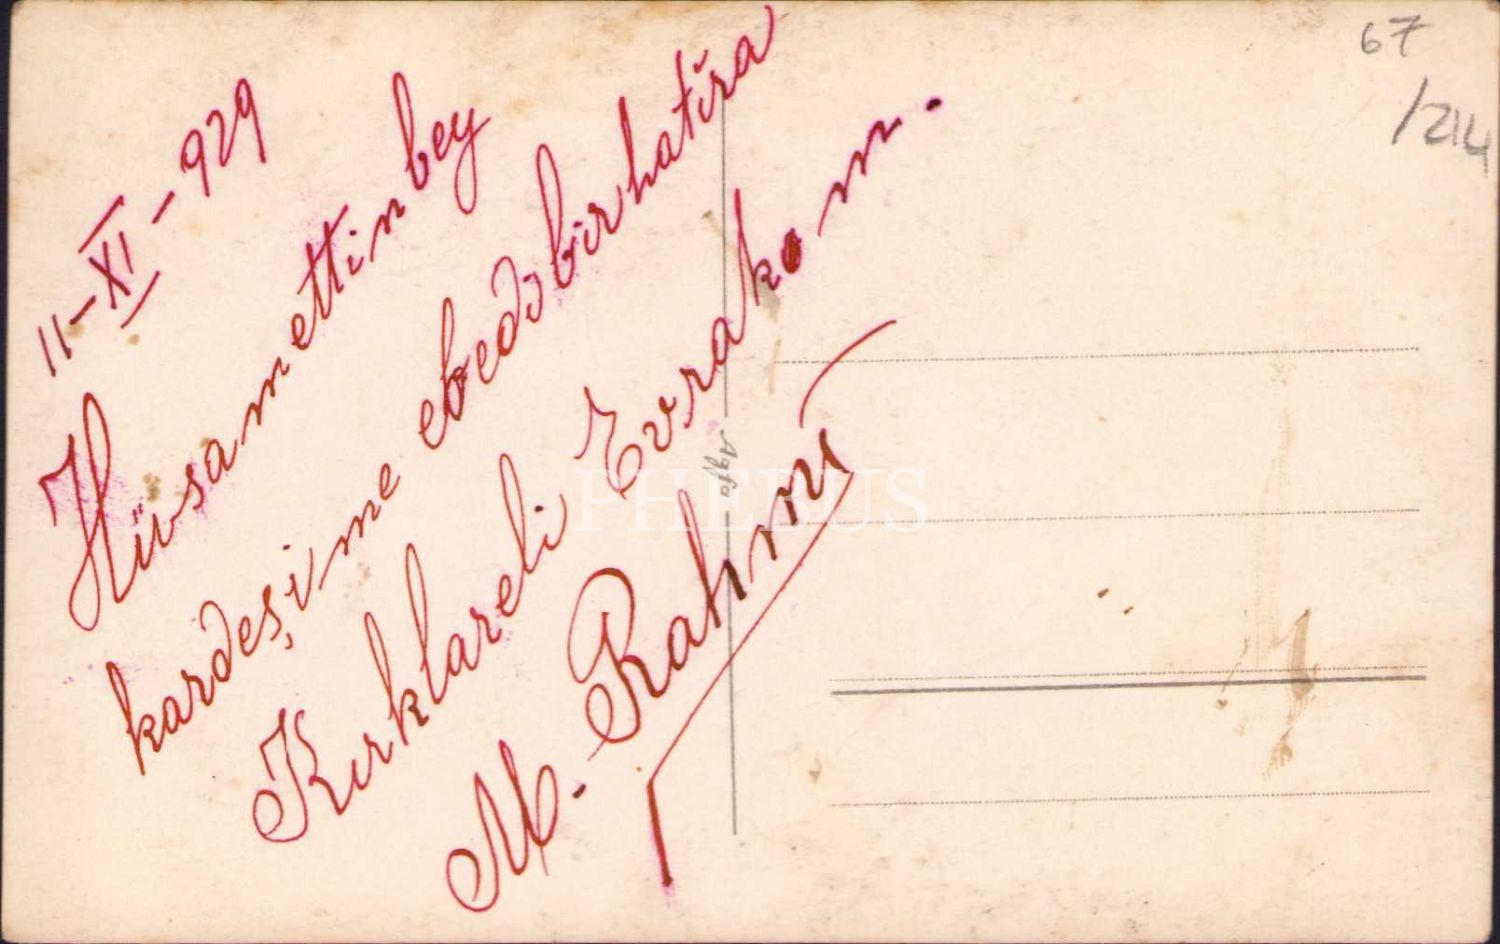 11-XI-929
Hüsamettin bey
kardeşime ebedi bir hatıra
Kırklareli Evrak om.
M. Rahmi
67
/214
Agfa
PHEBUS